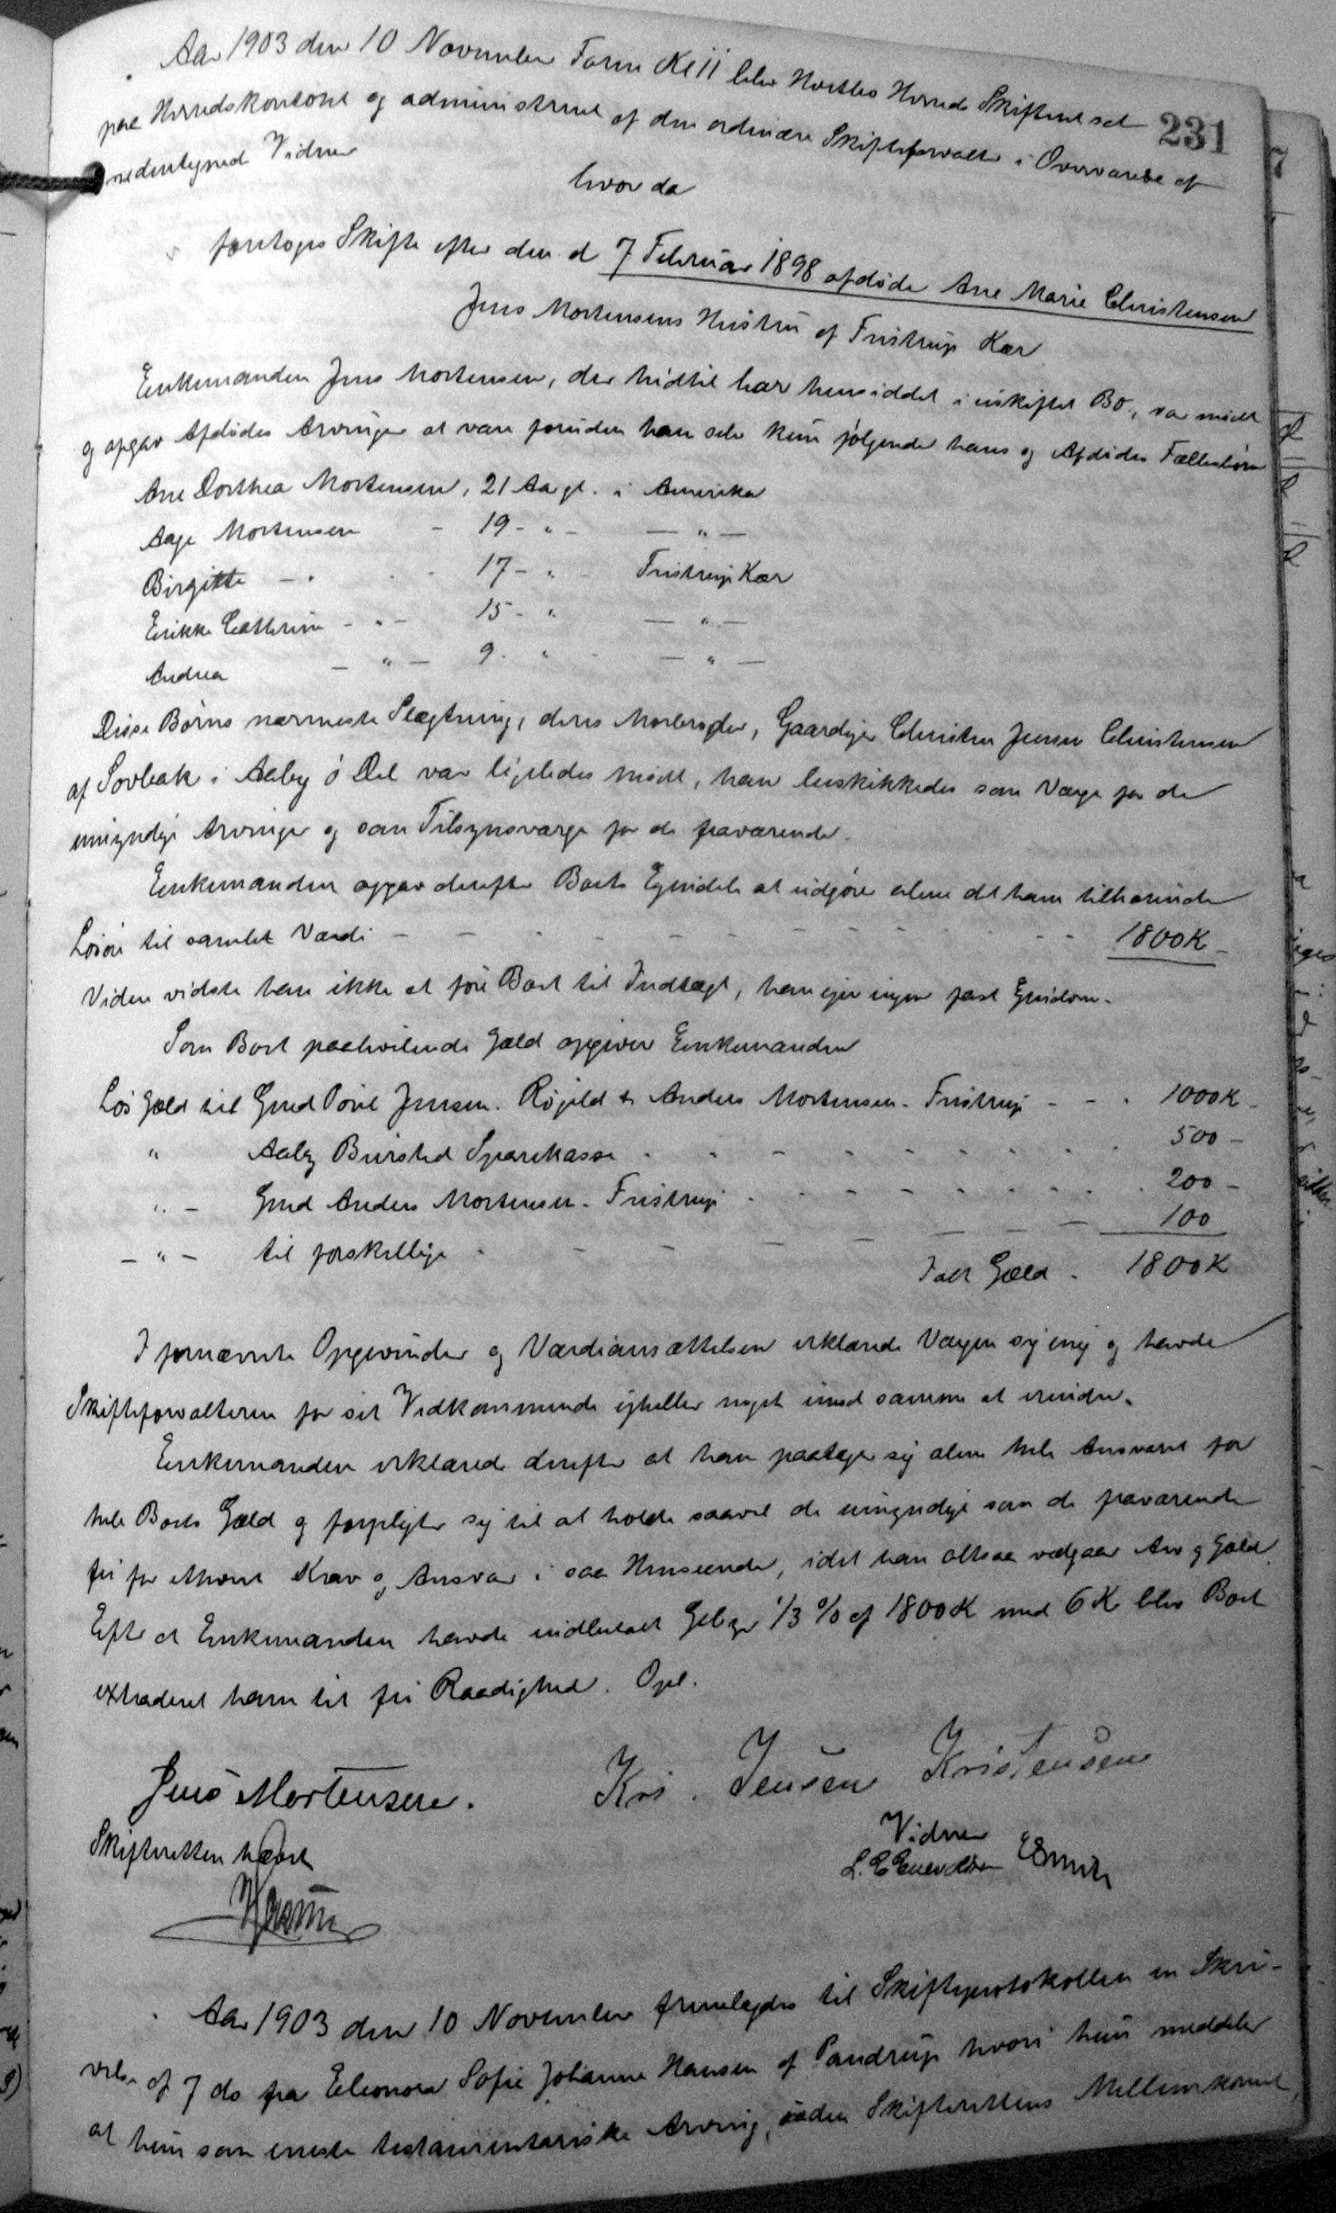 231
Aar 1903 den 10 November Form Kl 11 blev Hvetbo Herreds Skifteret sat
paa Herredskontoret og administreret af den ordinære Skifteforvalter i Overværelse af
nedentegnede Vidner
hvor da
foretoges Skifte efter den d 7 Februar 1898 afdøde Ane Marie Christensen
Jens Mortensens Hustru af Fristrup Kær
Enkemanden Jens Mortensen, der hidtil har hensiddet i uskiftet Bo, var mødt
og opgav Afdødes Arvinger at være foruden ham selv kun følgende hans og Afdødes Fællesbørn
Ane Dorthea Mortensen, 21 Aar gl. i Amerika
Aage Mortensen - 19 - " - — " —
Birgitte - " - 17 - " - Fristrup Kær
Erikke Cathrine - " - 15 - " — " —
Andrea — " — 9 - " - — " —
Disse Børns nærmeste Slægtning, deres Morbroder, Gaardejer Christen Jensen Christensen
af Sovbak i Aaby ø Del var ligeledes mødt, han beskikkedes som Værge for de
umyndige Arvinger og som Tilsynsværge for de fraværende.
Enkemanden opgav derefter Boets Ejendele at udgøre alene det ham tilhørende
Løsøre til samlet Værdi - - - - - - 1800 K -
Viden vidste han ikke at føre Boet til Indtægt, han ejer ingen fast Ejendom.
Som Boet paahvilende Gæld opgiver Enkemanden
Løs Gæld til Gmd Povl Jensen. Røgild & Anders Mortensen - Fristrup - - - 1000 K -
" Aaby Biersted Sparekasse - - - - - 500 -
" - Gmd Anders Mortensen - Fristrup - - - - - 200 -
— " — til forskellige - - - - - 100
Ialt Gæld - 1800 K
I fornævnte Opgivender og Værdiansættelsen erklærede Værgen sig enig og havde
Skifteforvalteren for sit Vedkommende ejheller noget imod samme at erindre.
Enkemanden erklærede derefter at han paatager sig alene hele Ansvaret for
hele Boets Gæld og forpligter sig til at holde saavel de umyndige som de fraværende
fri for ethvert Krav og Ansvar i saa Henseende, idet han altsaa vedgaar Arv og Gæld.
Efter at Enkemanden havde indbetalt Gebyr 1/3 % af 1800 K med 6 K blev Boet
extraderet ham til fri Raadighed. Opl.
Jens Mortensen. Kri. Jensen Kristensen
Skifteretten hævet
Vidner
L. C. ESmith
Aar 1903 den 10 November fremlagdes til Skifteprotokollen en Skri-
velse af 7 ds fra Eleonora Sofie Johanne Hansen af Pandrup hvori hun meddeler
at hun som eneste testamentariske Arving, uden Skifterettens Mellemkomst,